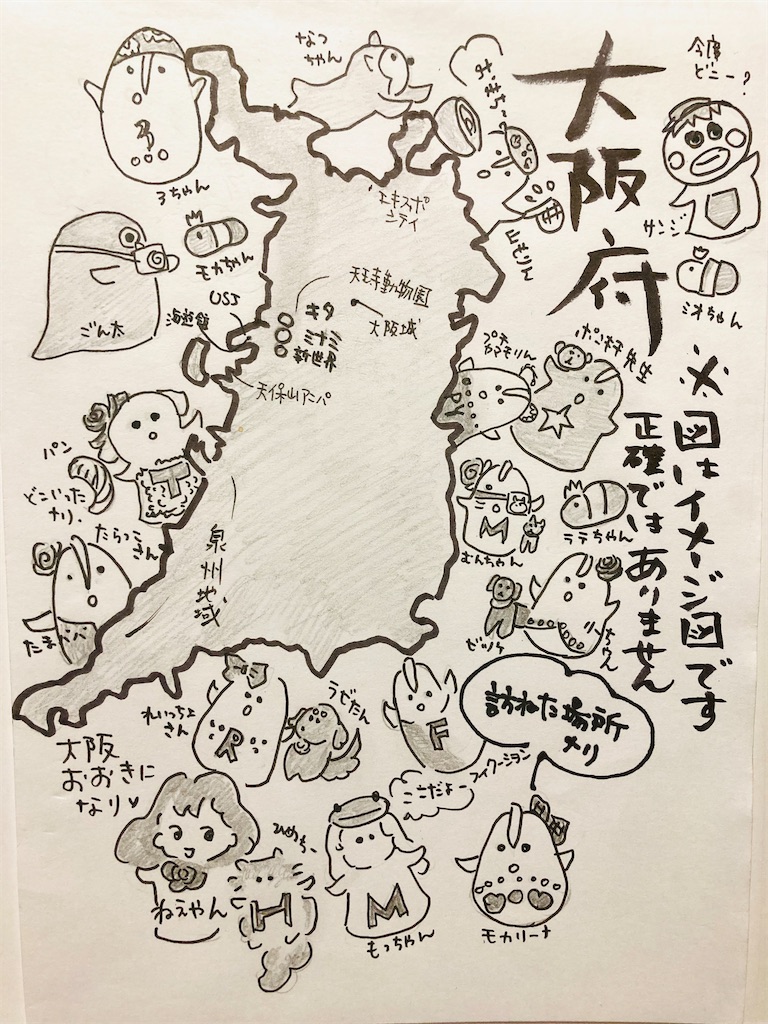 大阪府
※図はイメージ図です
正確ではありません
今度
どこー?
サンジ
ミオちゃん
なっ
ちゃん
おもち〜
山もりん
ろちゃん
モカちゃん
ごん太
エキスポ
シティ
天王寺動物園
大阪城
USJ
海遊館
キタ
ミナミ
新世界
天保山アニパ
泉州地域
プチ
ヤマモリん
ポン村先生
PY
パン
どこいった
ナリ.
T
たらこ
さん
たまパパ
M
むんちゃん
ラテちゃん
リンちゃん
訪ねた場所
メリ
れいっちょ
さん
R
うゼたん
F
フィクーション
ここだよー
大阪
おおきに
なり♡
ねえやん
ひめちー
H
M
もっちゃん
モカリーナ